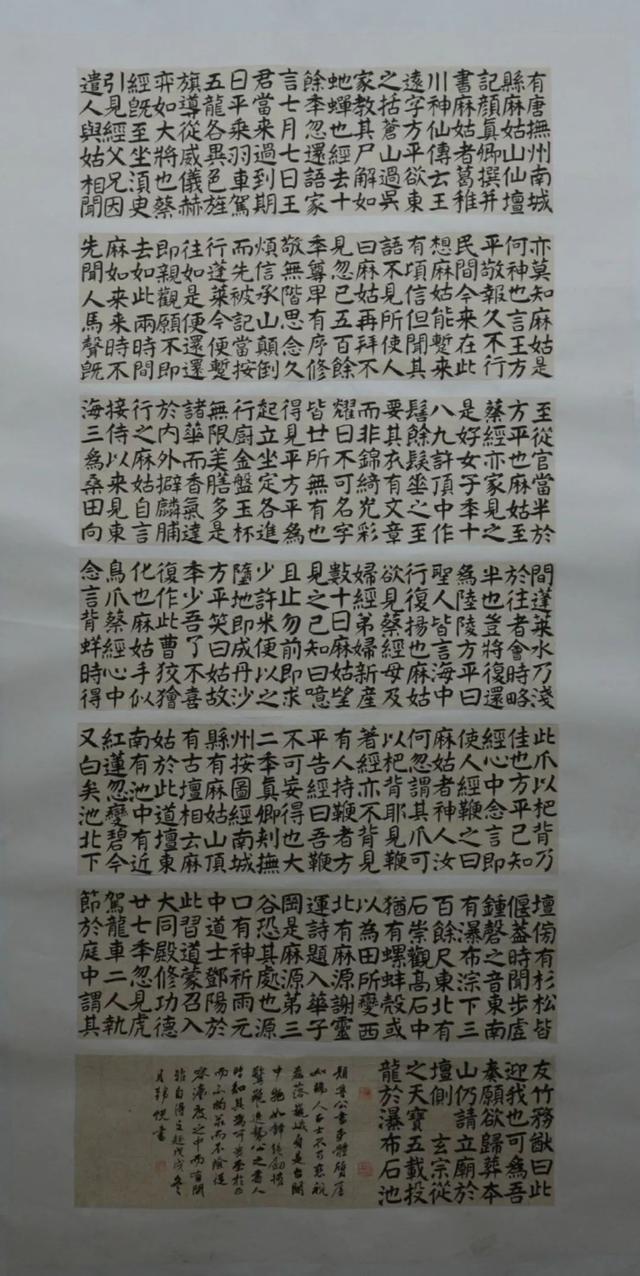 有唐撫州南城
縣麻姑山仙壇
記顏真卿撰并
書麻姑者葛稚
川神仙傳云王
遠字方平欲東
之括蒼山過吳
家教其尸解如
虵蟬也經去十
餘季忽還語家
言七月七日王
君當來過到期
日平乘羽車駕
五龍各異色旌
旗導從威儀赫
弈如大將也蔡
經旣至坐須臾
引見經父兄因
遣人與姑相聞
亦莫知麻姑是
何神也言王方
平敬報久不行
民間今來在此
想麻姑能蹔來
有頃信但聞其
語不見所使人
曰麻姑再拜不
見忽已五百餘
季尊卑有序修
敬無階思念久
煩信承山顛倒
而先被記當按
行蓬萊今便蹔
往如是便還還
即親觀願不即
去如此兩時間
麻如來來時不
先聞人馬聲旣
至從官當半於
方平也麻姑至
蔡經亦家見之
是好女子季十
八九許頂中作
髻餘髮垂之至
要其衣有文章
而非錦綺光彩
耀日不可名字
皆廿所無有也
得見平方平為
起立坐定各進
行廚金盤玉杯
無限美膳多是
諸華而香氣達
於內外擗麟脯
行之麻姑自言
接侍以來見東
海三為桑田向
間蓬萊水乃淺
於往者會時略
半也豈將復還
為陸陵方平曰
聖人皆言海中
行復揚也麻姑
欲見蔡經母及
婦經弟婦新產
數十日麻姑望
見之已知曰噫
且止勿前即求
少許米便以之
墮地即成丹沙
方平笑曰姑故
季少吾了不喜
復作此曹狡獪
化也麻姑手似
鳥爪蔡經心中
念言背蛘時得
此爪以杷背乃
佳也方平已知
經心中念言即
使人經鞭之曰
麻姑者神人汝
何忽謂其爪可
以杷背耶見鞭
著經亦不背見
有人持鞭者方
平告經曰吾鞭
不可妄得也大
二季真卿刾撫
州按圖經南城
縣有麻姑山頂
有古壇相去麻
姑於此道壇東
南有池中有近
紅蓮忽變碧今
又白矣池北下
壇傍有杉松皆
偃蓋時聞步虛
鍾磬之音東南
有瀑布淙下三
百餘尺東北有
石崇觀高石中
猶有螺蚌殼或
以為田所變西
北有麻源謝靈
運詩題入華子
岡是麻源弟三
谷恐其處也源
口有神祈雨元
中道士鄧陽於
此習道蒙召入
大同殿修功德
廿七季忽見虎
駕龍車二人執
節於庭中謂其
友竹務猷曰此
迎我也可為吾
奏願欲歸葬本
山仍請立廟於
壇側 玄宗從
之天寶五載投
龍於瀑布石池
顏魯公書多體質厚
如端人正士不可褻視